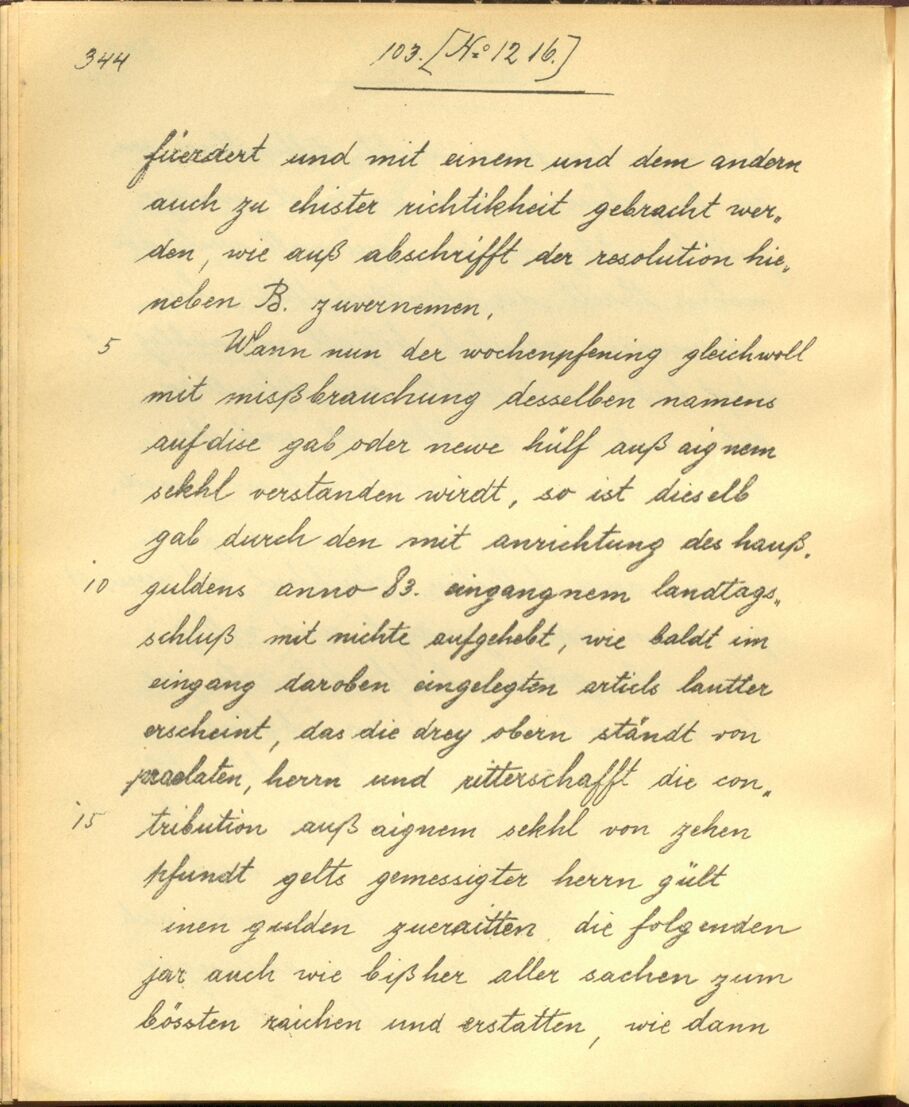 344
103. [No 1216.]
füerdert und mit einem und dem andern
auch zu ehister richtikheit gebracht wer„
den, wie auß abschrifft der resolution hie„
neben B. zuvernemen.
5 Wann nun der wochenpfening gleichwoll
mit mißbrauchung desselben namens
auf dise gab oder newe hülf auß aignem
sekhl verstanden wirdt, so ist dieselb
gab durch den mit anrichtung des hauß„
10 guldens anno 83. eingangnem landtags„
schluß mit nichte aufgehebt, wie baldt im
eingang daroben eingelegten articls lautter
erscheint, das die drey obern ständt von
praelaten, herrn und ritterschafft die con„
15 tribution auß aignem sekhl von zehen
pfundt gelts gemessigter herrn gült
inen gulden zueraitten die folgenden
jar auch wie bißher aller sachen zum
bössten raichen und erstatten, wie dann